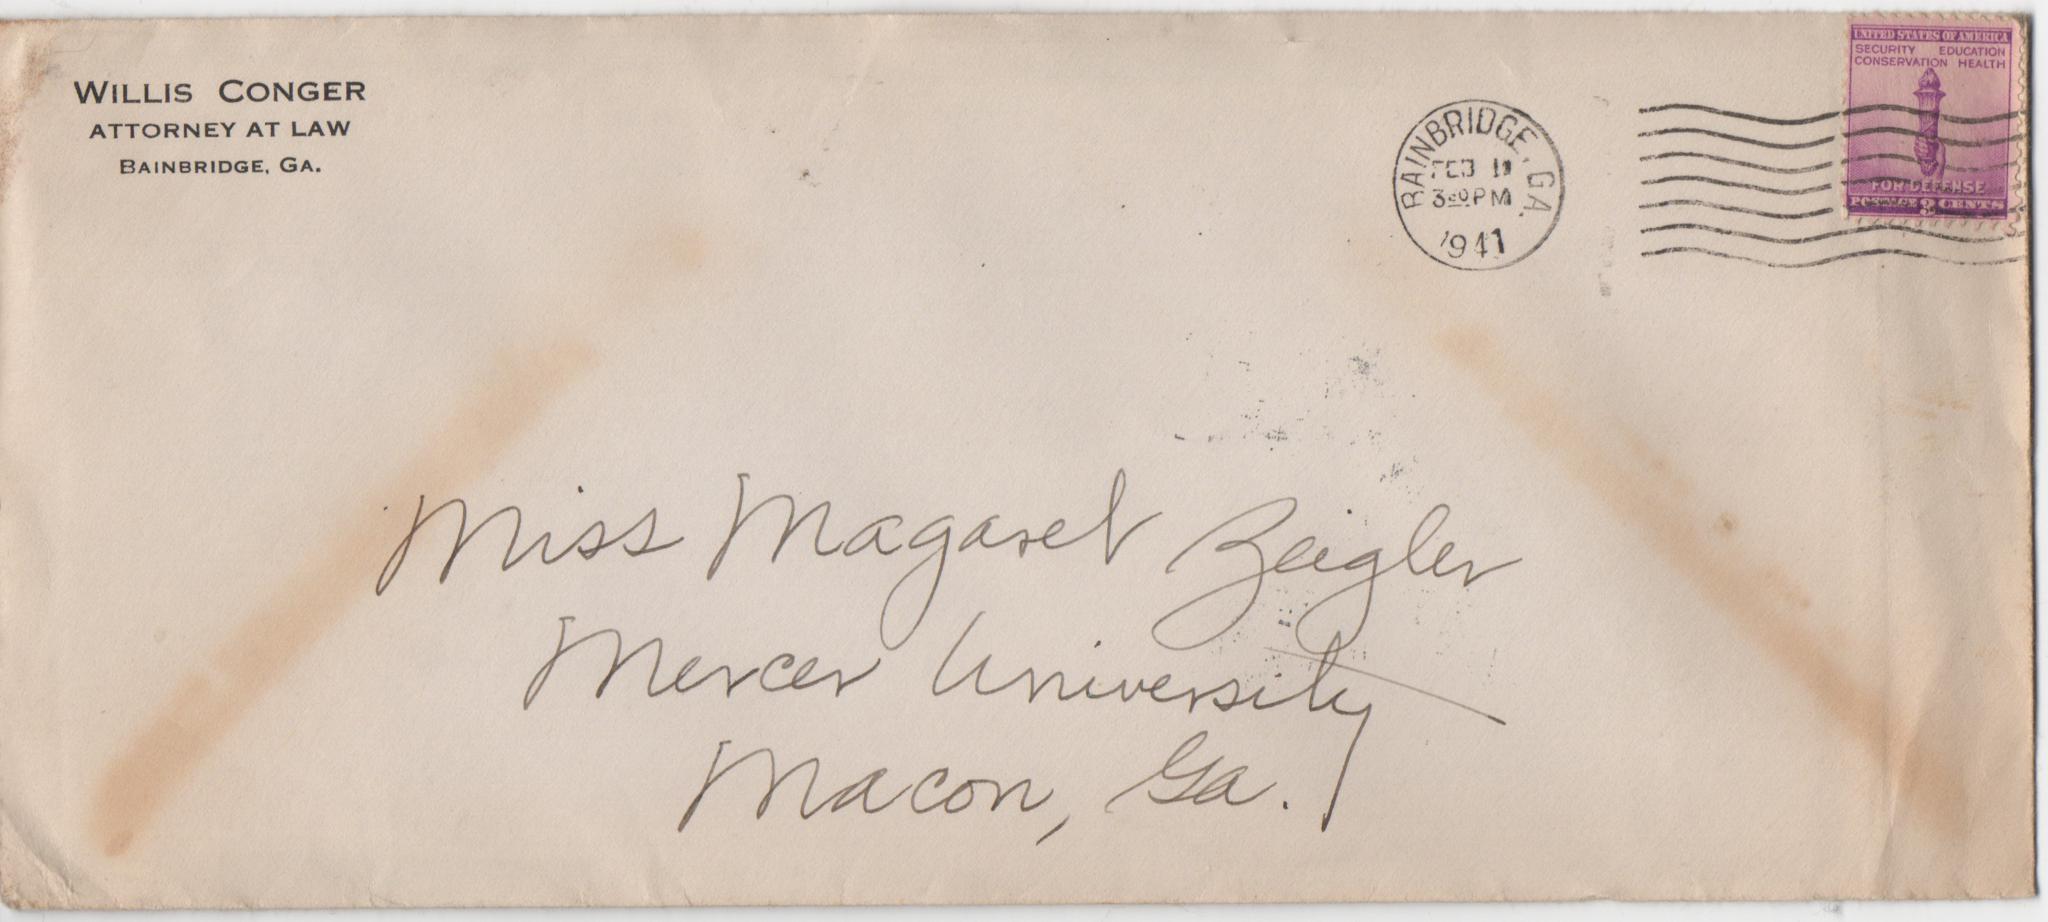 WILLIS CONGER
ATTORNEY AT LAW
BAINBRIDGE, GA.
BAINBRIDGE, GA.
FEB
3 30 PM
1941
UNITED STATES OF AMERICA
SECURITY EDUCATION
CONSERVATION HEALTH
FOR DEFENSE
POSTAGE 3 CENTS
Miss Magaret Zeigler
Mercer University
Macon, Ga.